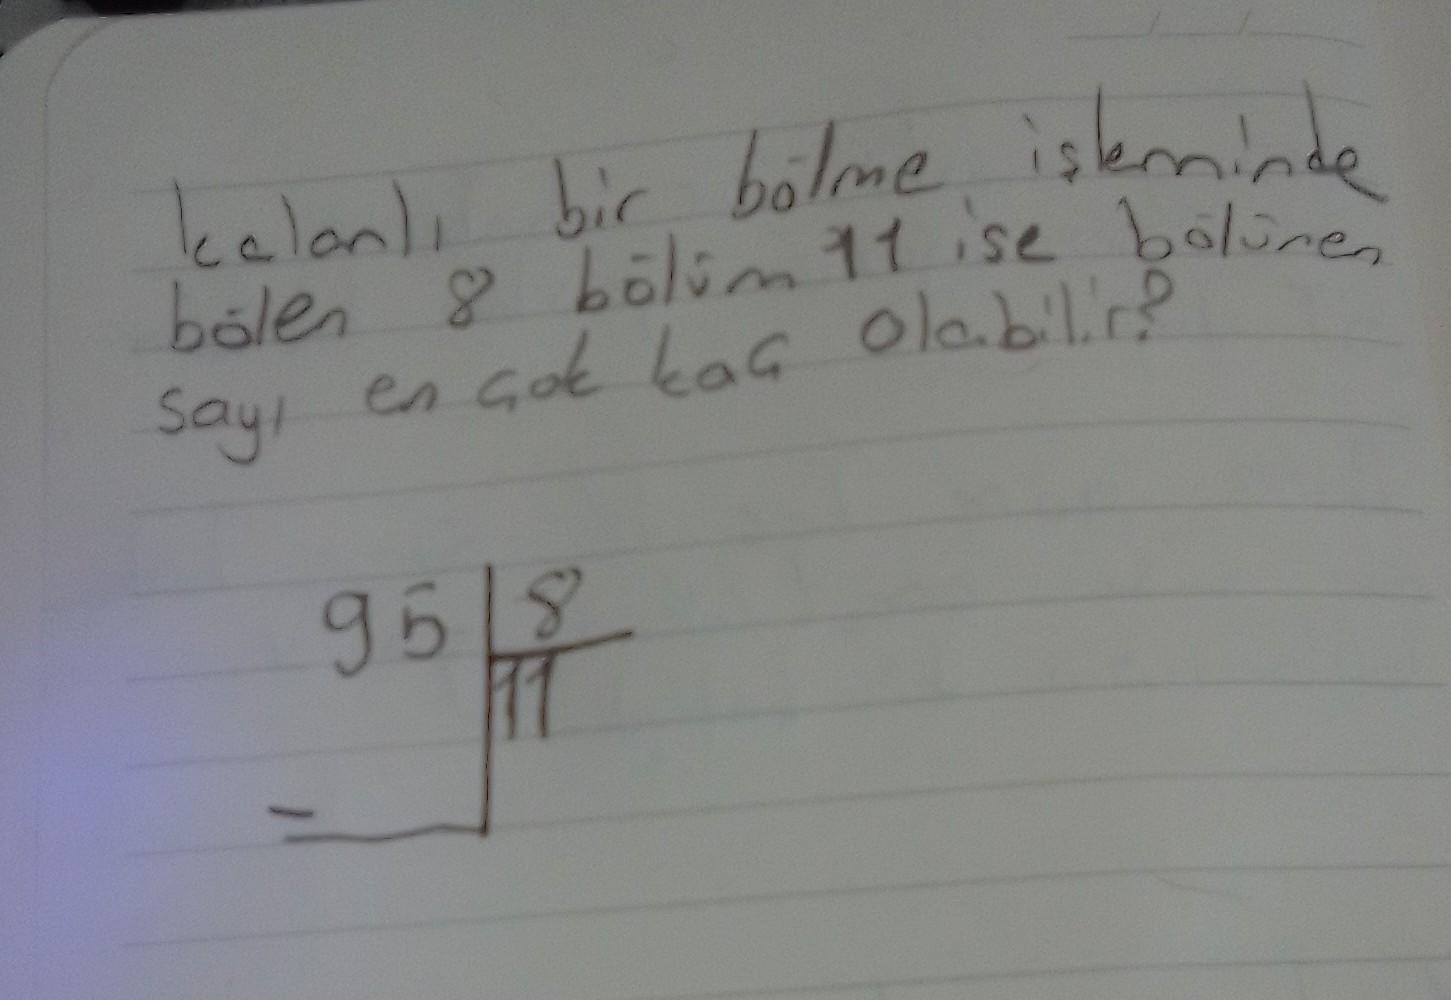 kalanlı bir bölme işleminde
bölen 8 bölüm 11 ise bölünen
sayı en çok kaç olabilir?
95 8
11
-